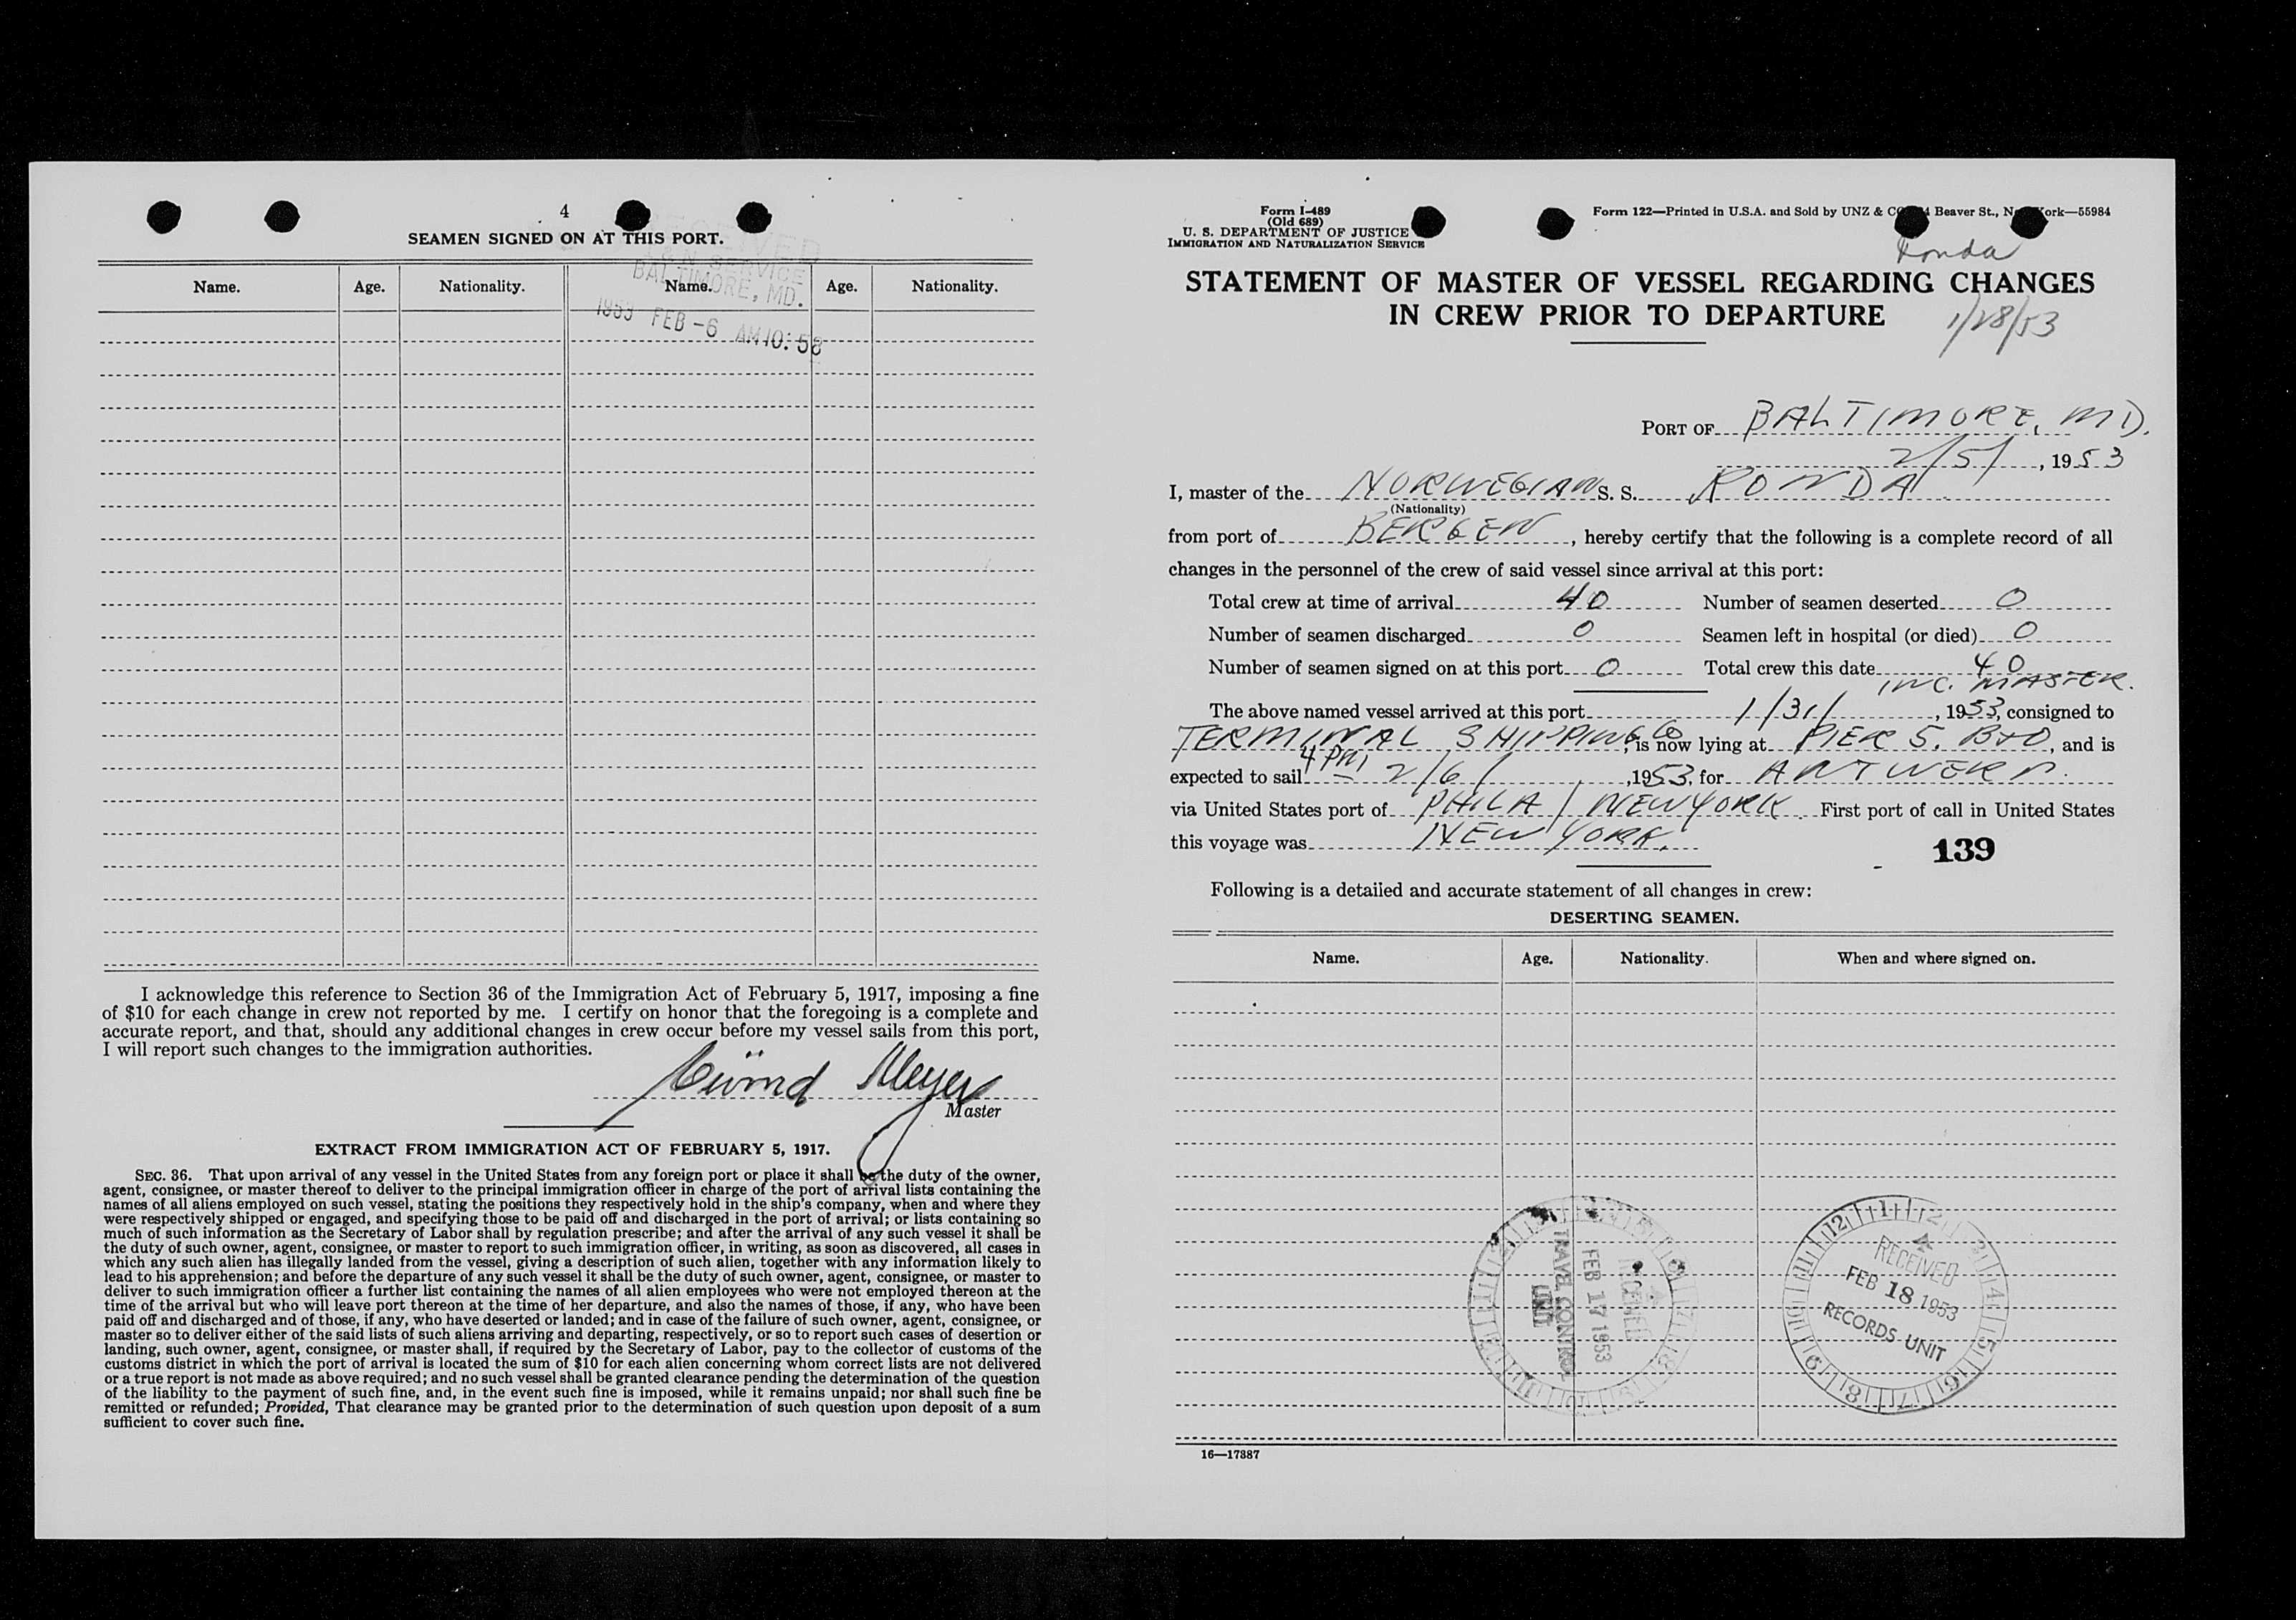 4
SEAMEN SIGNED ON AT THIS PORT.
Name. Age. Nationality. Name. Age. Nationality.
RECEIVED
I & N SERVICE
BALTIMORE, MD.
1953 FEB -6 AM 10:58
I acknowledge this reference to Section 36 of the Immigration Act of February 5, 1917, imposing a fine
of $10 for each change in crew not reported by me. I certify on honor that the foregoing is a complete and
accurate report, and that, should any additional changes in crew occur before my vessel sails from this port,
I will report such changes to the immigration authorities.
Meyer
Master
EXTRACT FROM IMMIGRATION ACT OF FEBRUARY 5, 1917.
SEC. 36. That upon arrival of any vessel in the United States from any foreign port or place it shall be the duty of the owner,
agent, consignee, or master thereof to deliver to the principal immigration officer in charge of the port of arrival lists containing the
names of all aliens employed on such vessel, stating the positions they respectively hold in the ship's company, when and where they
were respectively shipped or engaged, and specifying those to be paid off and discharged in the port of arrival; or lists containing so
much of such information as the Secretary of Labor shall by regulation prescribe; and after the arrival of any such vessel it shall be
the duty of such owner, agent, consignee, or master to report to such immigration officer, in writing, as soon as discovered, all cases in
which any such alien has illegally landed from the vessel, giving a description of such alien, together with any information likely to
lead to his apprehension; and before the departure of any such vessel it shall be the duty of such owner, agent, consignee, or master to
deliver to such immigration officer a further list containing the names of all alien employees who were not employed thereon at the
time of the arrival but who will leave port thereon at the time of her departure, and also the names of those, if any, who have been
paid off and discharged and of those, if any, who have deserted or landed; and in case of the failure of such owner, agent, consignee, or
master so to deliver either of the said lists of such aliens arriving and departing, respectively, or so to report such cases of desertion or
landing, such owner, agent, consignee, or master shall, if required by the Secretary of Labor, pay to the collector of customs of the
customs district in which the port of arrival is located the sum of $10 for each alien concerning whom correct lists are not delivered
or a true report is not made as above required; and no such vessel shall be granted clearance pending the determination of the question
of the liability to the payment of such fine, and, in the event such fine is imposed, while it remains unpaid; nor shall such fine be
remitted or refunded; Provided, That clearance may be granted prior to the determination of such question upon deposit of a sum
sufficient to cover such fine.
Form I-489
(Old 689)
U. S. DEPARTMENT OF JUSTICE
IMMIGRATION AND NATURALIZATION SERVICE
Form 122—Printed in U.S.A. and Sold by UNZ & CO Beaver St., New York—55984
Ronda
STATEMENT OF MASTER OF VESSEL REGARDING CHANGES
IN CREW PRIOR TO DEPARTURE
1/28/53
PORT OF BALTIMORE, MD.
2/5/, 1953
I, master of the NORWEGIAN S. S. RONDA
(Nationality)
from port of BERGEN, hereby certify that the following is a complete record of all
changes in the personnel of the crew of said vessel since arrival at this port:
Total crew at time of arrival 40 Number of seamen deserted 0
Number of seamen discharged 0 Seamen left in hospital (or died) 0
Number of seamen signed on at this port 0 Total crew this date 40
INC. MASTER.
The above named vessel arrived at this port 1/31/, 1953, consigned to
TERMINAL SHIPPING CO, is now lying at PIER 5, B&O, and is
expected to sail 4 PM 2/6/, 1953, for ANTWERP.
via United States port of PHILA / NEW YORK. First port of call in United States
this voyage was NEW YORK.
139
Following is a detailed and accurate statement of all changes in crew:
DESERTING SEAMEN.
Name. Age. Nationality. When and where signed on.
RECEIVED
FEB 17 1953
TRAVEL CONTROL
UNIT
12 1 2 3 4 5 6 7 8 9 10 11
RECEIVED
FEB 18 1953
RECORDS UNIT
16—17887